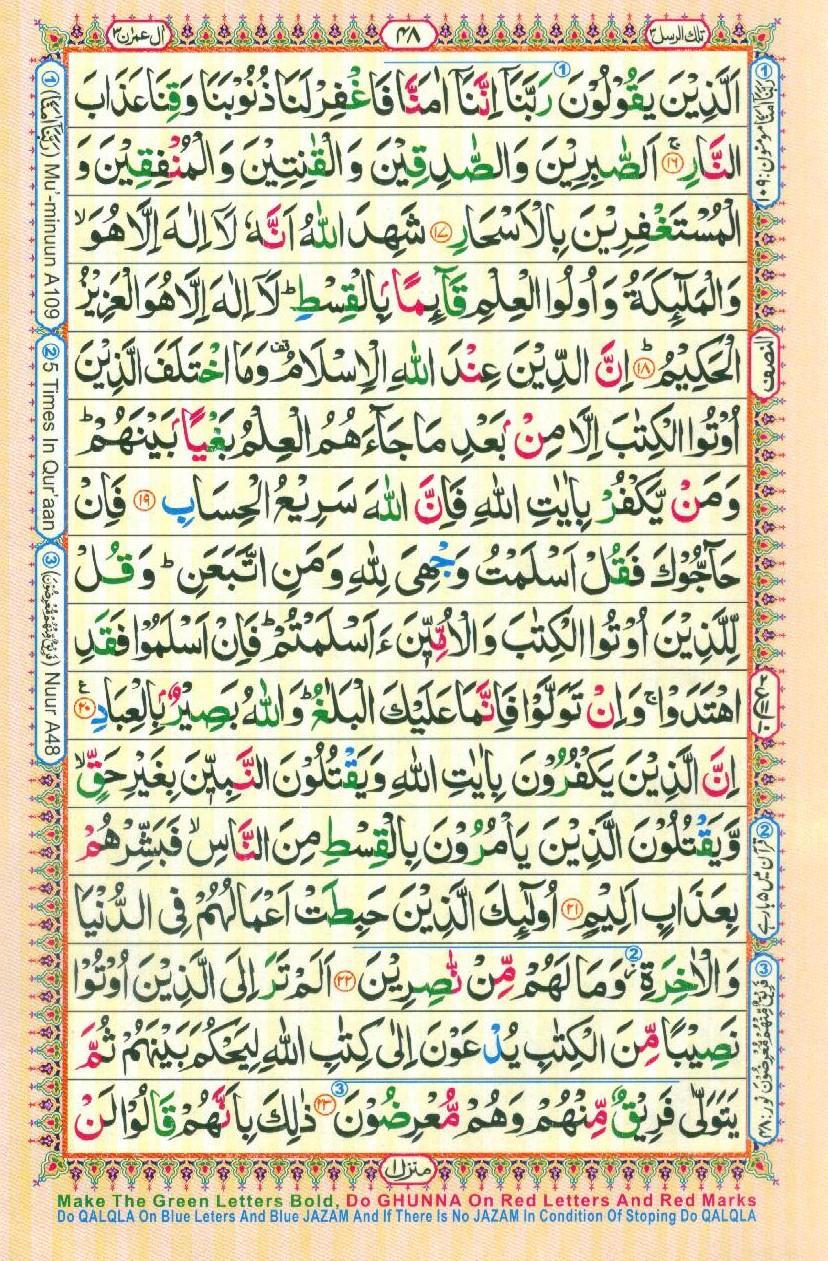 تلك الرسل ٣
٤٨
اٰل عمرٰن ٣
اَلَّذِیْنَ یَقُوْلُوْنَ رَبَّنَاۤ اِنَّنَاۤ اٰمَنَّا فَاغْفِرْ لَنَا ذُنُوْبَنَا وَقِنَا عَذَابَ
النَّارِۚ ﴿۱۶﴾ اَلصّٰبِرِیْنَ وَالصّٰدِقِیْنَ وَالْقٰنِتِیْنَ وَالْمُنْفِقِیْنَ وَ
الْمُسْتَغْفِرِیْنَ بِالْاَسْحَارِ ﴿۱۷﴾ شَهِدَ اللّٰهُ اَنَّهٗ لَاۤ اِلٰهَ اِلَّا هُوَۙ
وَالْمَلٰٓىِٕكَةُ وَاُولُوا الْعِلْمِ قَآىِٕمًۢا بِالْقِسْطِؕ لَاۤ اِلٰهَ اِلَّا هُوَ الْعَزِیْزُ
الْحَكِیْمُؕ ﴿۱۸﴾ اِنَّ الدِّیْنَ عِنْدَ اللّٰهِ الْاِسْلَامُ قف وَمَا اخْتَلَفَ الَّذِیْنَ
اُوْتُوا الْكِتٰبَ اِلَّا مِنْۢ بَعْدِ مَا جَآءَهُمُ الْعِلْمُ بَغْیًۢا بَیْنَهُمْؕ
وَمَنْ یَّكْفُرْ بِاٰیٰتِ اللّٰهِ فَاِنَّ اللّٰهَ سَرِیْعُ الْحِسَابِ ﴿۱۹﴾ فَاِنْ
حَآجُّوْكَ فَقُلْ اَسْلَمْتُ وَجْهِیَ لِلّٰهِ وَمَنِ اتَّبَعَنِؕ وَقُلْ
لِّلَّذِیْنَ اُوْتُوا الْكِتٰبَ وَالْاُمِّیّٖنَ ءَاَسْلَمْتُمْؕ فَاِنْ اَسْلَمُوْا فَقَدِ
اهْتَدَوْاۚ وَاِنْ تَوَلَّوْا فَاِنَّمَا عَلَیْكَ الْبَلٰغُؕ وَاللّٰهُ بَصِیْرٌۢ بِالْعِبَادِ ﴿۲۰﴾ ع
اِنَّ الَّذِیْنَ یَكْفُرُوْنَ بِاٰیٰتِ اللّٰهِ وَیَقْتُلُوْنَ النَّبِیّٖنَ بِغَیْرِ حَقٍّۙ
وَّیَقْتُلُوْنَ الَّذِیْنَ یَاْمُرُوْنَ بِالْقِسْطِ مِنَ النَّاسِۙ فَبَشِّرْهُمْ
بِعَذَابٍ اَلِیْمٍ ﴿۲۱﴾ اُولٰٓىِٕكَ الَّذِیْنَ حَبِطَتْ اَعْمَالُهُمْ فِی الدُّنْیَا
وَالْاٰخِرَةِؗ وَمَا لَهُمْ مِّنْ نّٰصِرِیْنَ ﴿۲۲﴾ اَلَمْ تَرَ اِلَی الَّذِیْنَ اُوْتُوْا
نَصِیْبًا مِّنَ الْكِتٰبِ یُدْعَوْنَ اِلٰی كِتٰبِ اللّٰهِ لِیَحْكُمَ بَیْنَهُمْ ثُمَّ
یَتَوَلّٰی فَرِیْقٌ مِّنْهُمْ وَهُمْ مُّعْرِضُوْنَ ﴿۲۳﴾ ذٰلِكَ بِاَنَّهُمْ قَالُوْا لَنْ
① رَبَّنَاۤ اٰمَنَّا مومنون: ۱۰۹
النصف
② قرآن میں ۵ بار ہے
③ فَرِیْقٌ مِّنْهُمْ مُّعْرِضُوْنَ نور: ۴۸
① (رَبَّنَاۤ اٰمَنَّا) Mu'-minuun A109
② 5 Times In Qur'aan
③ (فَرِیْقٌ مِّنْهُمْ مُّعْرِضُوْنَ) Nuur A48
منزل ۱
Make The Green Letters Bold, Do GHUNNA On Red Letters And Red Marks
Do QALQLA On Blue Leters And Blue JAZAM And If There Is No JAZAM In Condition Of Stoping Do QALQLA